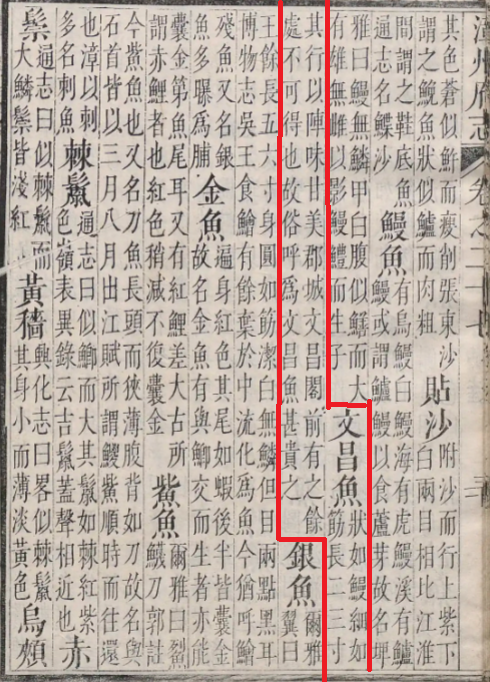 漳州府志 卷之二十七
其色蒼似鮓而瘦削張東沙
謂之鮸魚狀似鱸而肉粗
貼沙
附沙而行上紫下
白兩目相比江淮
間謂之鞋底魚
通志名鰈沙
鰻魚
有烏鰻白鰻海有虎鰻溪有鱸
鰻或謂鱸鰻以食蘆芽故名埤
雅曰鰻無鱗甲白腹似鱔而大
有雄無雌以影鰻鱧而生子
文昌魚
狀如鰻細如
筋長二三寸
其行以陣味甘美郡城文昌閣前有之餘
處不可得也故俗呼為文昌魚甚貴之
銀魚
爾雅
翼曰
王餘長五六寸身圓如筋潔白無鱗但目兩點黑耳
博物志吳王食鱠有餘棄於中流化為魚今猶呼鱠
殘魚又名銀
魚多曝為脯
金魚
遍身紅色其尾如蝦後半皆囊金
故名金魚有與鯽交而生者亦能
囊金第魚尾耳又有紅鯉差大古所
謂赤鯉者也紅色稍減不復囊金
鮆魚
爾雅曰鮤
鱴刀郭註
今鮆魚也又名刀魚長頭而狹薄腹背如刀故名與
石首皆以三月八月出江賦所謂鯼鮆順時而往還
也漳以刺
多名刺魚
棘鬣
通志曰似鯽而大其鬣如棘紅紫
色嶺表異錄云吉鬣蓋聲相近也
赤
鬃
通志曰似棘鬣而
大鱗鬃皆淺紅
黃穡
興化志曰畧似棘鬣
其身小而薄淡黃色
烏頰